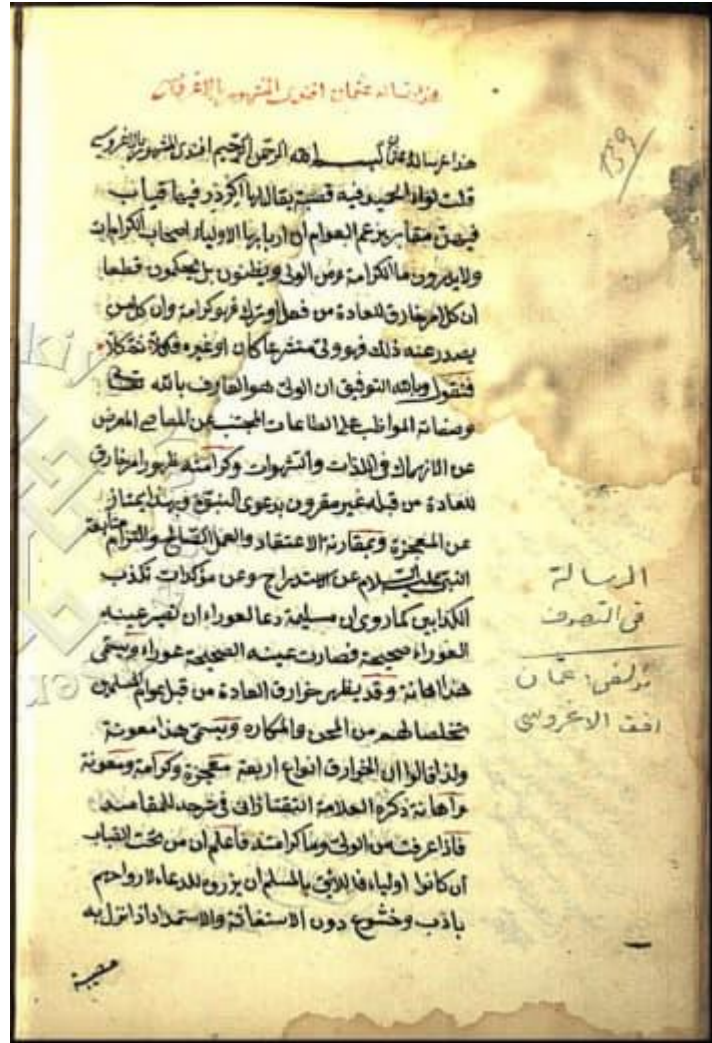 هذا رساله عثمان افندى المشهور بالاغروسى
هذا رسالة عثمان بسم الله الرحمن الرحيم افندى المشهور بالاغروسى
قلت لواء الحميد فيه قصبة يقال لها اكردر فيها قباب
فيهن مقابر يزعم العوام ان اربابها الاولياء اصحاب الكرامات
ولا يدرون ما الكرامة ومن الولى ويظنون بل يحكمون قطعا
ان كل امر خارق للعادة من فعل او ترك فهو كرامة وان كل من
يصدر عنه ذلك فهو ولى متشرعا كان او غيره فكلا ثم كلا
فنقول وبالله التوفيق ان الولى هو العارف بالله تعالى
وصفاته المواظب على الطاعات المجتنب عن المعاصى المعرض
عن الانهماك فى اللذات والشهوات وكرامته ظهور امر خارق
للعادة من قبله غير مقرون بدعوى النبوة وبهذا يمتاز
عن المعجزة وبمقارنة الاعتقاد والعمل الصالح والتزام متابعة
النبى عليه السلام عن الاستدراج وعن مؤكدات تكذب
الكذابين كما روى ان مسيلمة دعا لعوراء ان تصير عينه
العوراء صحيحة فصارت عينه الصحيحة عوراء ويسمى
هذا اهانة وقد يظهر خوارق العادة من قبل عوام المسلمين
تخلصا لهم من المحن والمكاره ويسمى هذا معونة
ولذا قالوا ان الخوارق انواع اربعة معجزة وكرامة ومعونة
واهانة ذكره العلامة التفتازانى فى شرحه للمقاصد
فاذا عرفت من الولى وما كرامته فاعلم ان من تحت القباب
ان كانوا اولياء فاللائق بالمسلم ان يزرون للدعاء لارواحهم
بادب وخشوع دون الاستغاثة والاستمداد اذا نزل به
مصيبة
139
الرسالة
فى التصوف
مؤلفى: عثمان
افند الاغروسى